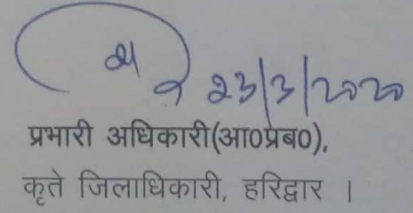 23/3/2020
प्रभारी अधिकारी(आ0प्रब0),
कृते जिलाधिकारी, हरिद्वार ।